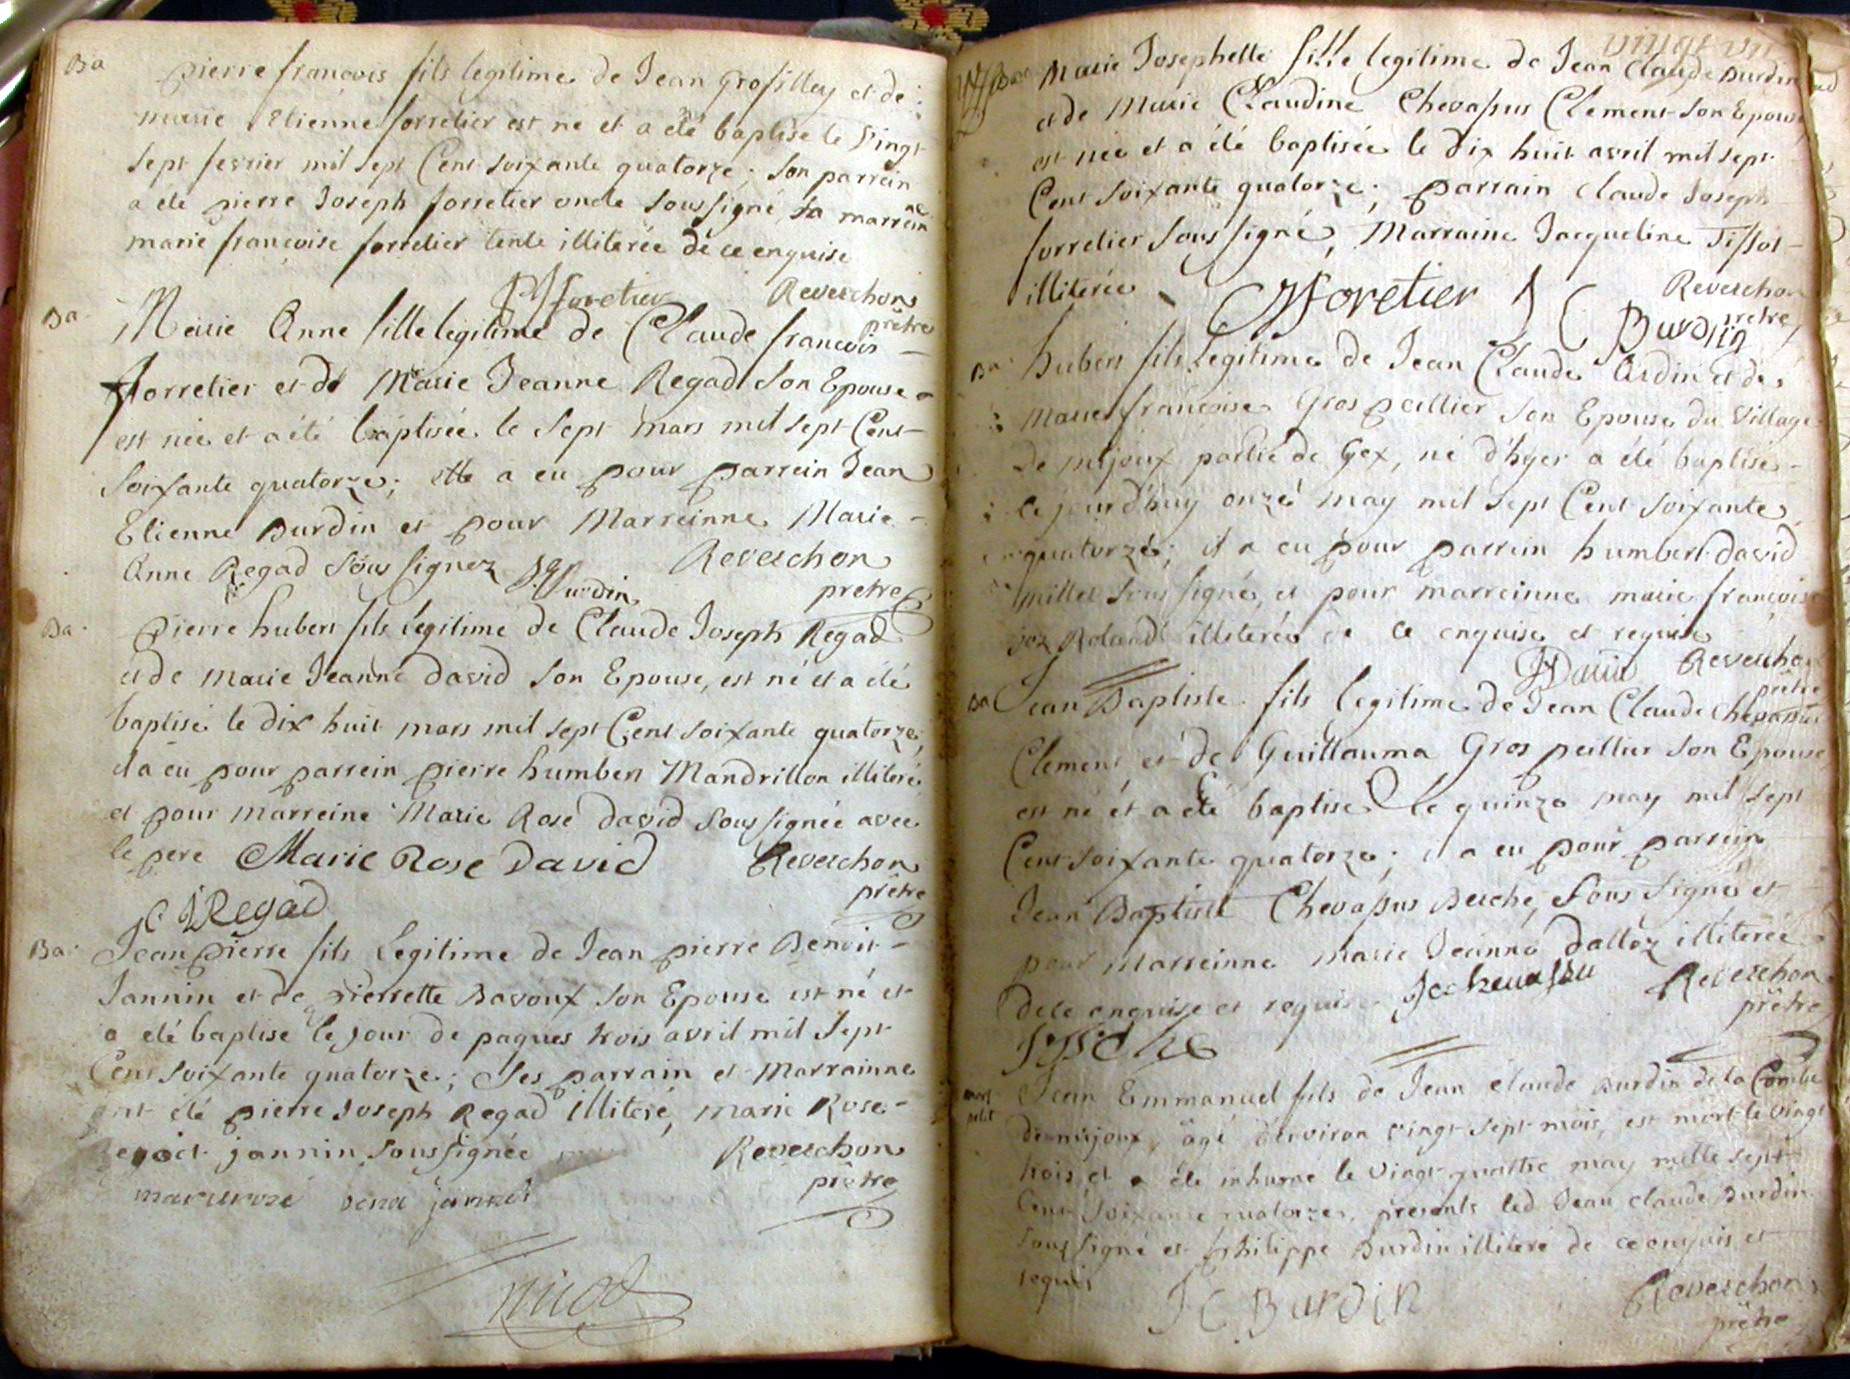 Ba
pierre francois fils legitime de Jean Grosfilley et de
marie Etienne forretier est né et a été baptisé le Vingt
sept fevrier mil sept Cent soixante quatorze; son parrein
a été pierre Joseph forretier oncle sous signé sa marreinne
marie françoise forretier tente illiterée de ce enquise
PJ foretier Reverchon
prêtre
Ba
Marie Anne fille legitime de Claude francois
forretier et de Marie Jeanne Regad son Epouse
est née et a été baptisée le sept mars mil sept Cent
soixante quatorze; elle a eu pour parrein Jean
Etienne Burdin et pour Marreinne Marie
Anne Regad sous signez Burdin Reverchon
pretre
Ba
pierre hubert fils legitime de Claude Joseph Regad
et de Marie Jeanne david son Epouse, est né et a été
baptisé le dix huit mars mil sept Cent soixante quatorze;
il a eu pour parrein pierre humbert Mandrillon illiteré
et pour marreine Marie Rose david sous signée avec
le pere Marie Rose David Reverchon
prêtre
C J Regad
Ba
Jean pierre fils legitime de Jean pierre Benoit
Jannin et de pierrette Bavoux son Epouse est né et
a été baptisé le jour de paques trois avril mil sept
Cent soixante quatorze; ses parrain et Marrainne
ont été pierre Joseph Regad illiteré, marie Rose
Benoit jannin sous signée Reverchon
prêtre
Marie Josephette fille legitime de Jean Claude Burdin
et de Marie Claudine Chevassus Clement son Epouse
est née et a été baptisée le dix huit avril mil sept
Cent soixante quatorze; parrain Claude Joseph
forretier sous signé, Marraine Jacqueline Tissot
illiterée CJ foretier J C Burdin Reverchon
prêtre
Ba
hubert fils legitime de Jean Claude Burdin et de
Marie françoise Gros peillier son Epouse du Village
de mijoux partie de Gex, né d'hyer a été baptisé
ce jourd'huy onze may mil sept Cent soixante
quatorze; il a eu pour parrein humbert david
millet sous signé, et pour marreinne marie françoise
Roland illiterée de ce enquise et requise
David Reverchon
prêtre
Ba
Jean Baptiste fils legitime de Jean Claude Chevassus
Clement et de Guillauma Gros peillier son Epouse
est né et a été baptisé le quinze may mil sept
Cent soixante quatorze; il a eu pour parrein
Jean Baptiste Chevassus Berche, sous signé et
pour Marreinne marie Jeanne dalloz illiterée
de ce enquise et requise Reverchon
prêtre
mort
petit
Jean Emmanuel fils de Jean claude Burdin de la Combe
de mijoux, agé d'environ vingt sept mois, est mort le vingt
trois et a été inhumé le vingt quattre may mille sept
Cent soixante quatorze, présents led Jean Claude Burdin
sous signé et philippe Burdin illiteré de ce enquis et
requis
J C Burdin Reverchon
prêtre